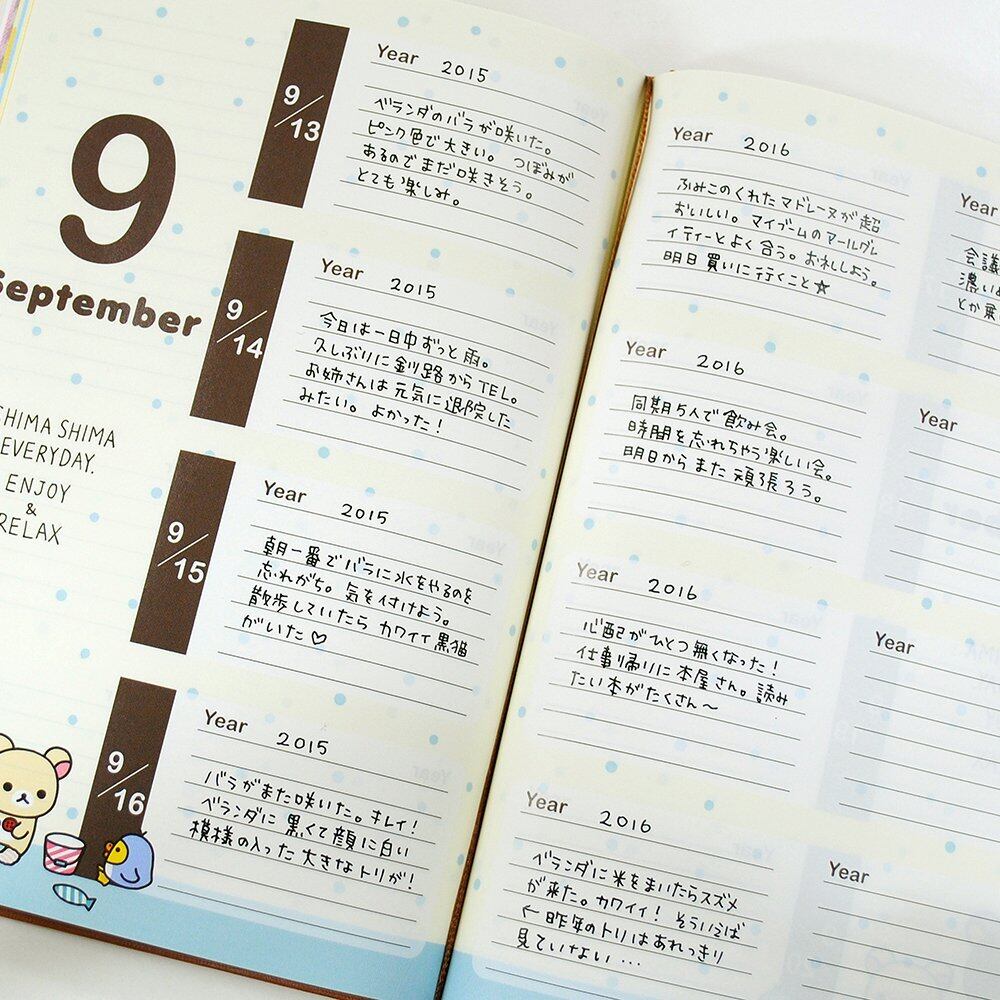 9
September
SHIMA SHIMA
EVERYDAY.
ENJOY
&
RELAX
9/13
Year 2015
ベランダのバラが咲いた。
ピンク色で大きい。つぼみが
あるのでまだ咲きそう。
とても楽しみ。
9/14
Year 2015
今日は一日中ずっと雨。
久しぶりに釧路からTEL。
お姉さんは元気に退院した
みたい。よかった!
9/15
Year 2015
朝一番でバラに水をやるのを
忘れがち。気を付けよう。
散歩していたらカワイイ黒猫
がいた♡
9/16
Year 2015
バラがまた咲いた。キレイ!
ベランダに黒くて顔に白い
模様の入った大きなトリが!
Year 2016
ふみこのくれたマドレーヌが超
おいしい。マイブームのアールグレ
イティーとよく合う。お礼しよう。
明日買いに行くこと☆
Year 2016
同期5人で飲み会。
時間を忘れちゃう楽しい会。
明日からまた頑張ろう。
Year 2016
心配がひとつ無くなった!
仕事帰りに本屋さん。読み
たい本がたくさん〜
Year 2016
ベランダに米をまいたらスズメ
が来た。カワイイ! そういえば
←昨年のトリはあれっきり
見ていない…
Year
会議
濃い
とか
Year
Year
Year